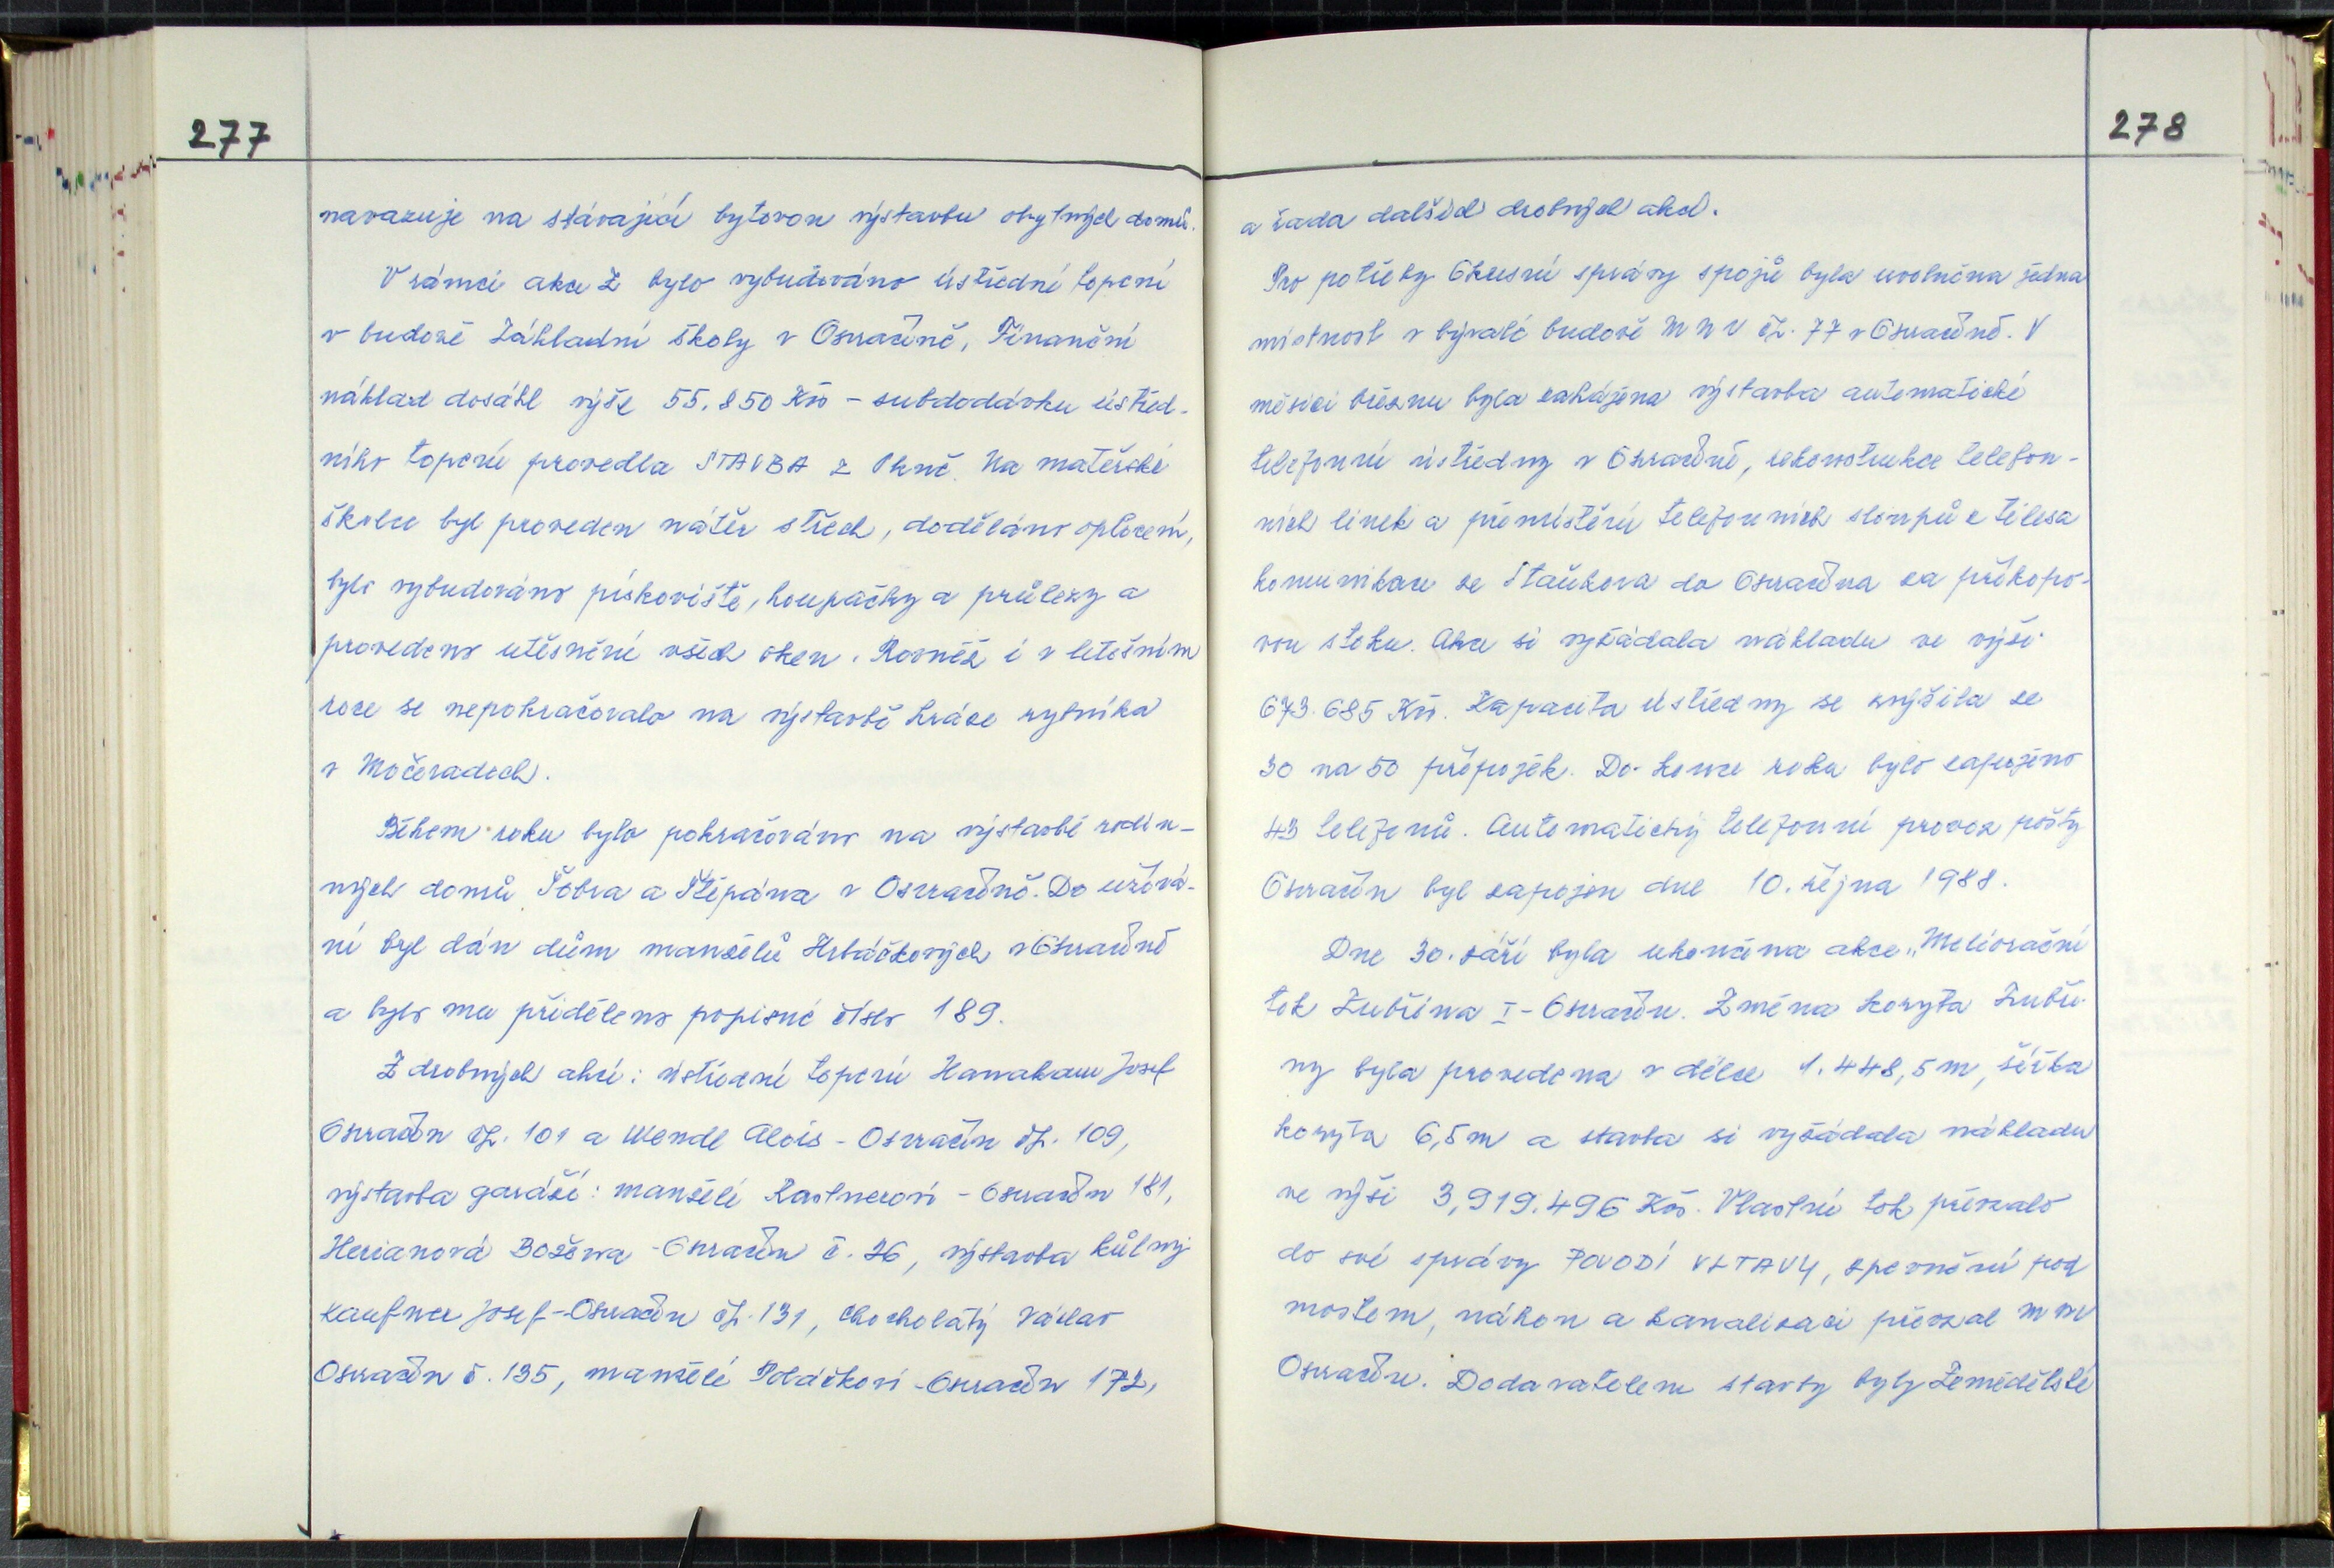 277
navazuje na stávající bytovou výstavbu obytných domů.
V rámci akce Z bylo vybudováno ústřední topení
v budově Základní školy v Osvračíně, Finanční
náklad dosáhl výše 55.850 Kčs - subdodávku ústřed-
ního topení provedla STAVBA z Plzně. Na mateřské
školce byl proveden nátěr střech, doděláno oplocení,
bylo vybudováno pískoviště, houpačky a průlezy a
provedeno utěsnění všech oken. Rovněž i v letošním
roce se nepokračovalo na výstavbě hráze rybníka
v Močeradech.
Během roku bylo pokračováno na výstavbě rodin-
ných domů Šobra a Štěpána v Osvračíně. Do užívá-
ní byl dán dům manželů Hrbáčkových v Osvračíně
a bylo mu přiděleno popisné číslo 189.
Z drobných akcí: ústřední topení Hanakam Josef
Osvračín čp. 101 a Wendl Alois - Osvračín čp. 109,
výstavba garáží: manželé Kastnerovi - Osvračín 181,
Herianová Božena - Osvračín č. 26, výstavba kůlny
Kaufner Josef - Osvračín čp. 131, Chocholatý Václav
Osvračín č. 135, manželé Poláčkovi - Osvračín 172,
278
a řada dalších drobných akcí.
Pro potřeby Okresní správy spojů byla uvolněna jedna
místnost v bývalé budově MNV čp. 77 v Osvračíně. V
měsíci březnu byla zahájena výstavba automatické
telefonní ústředny v Osvračíně, rekonstrukce telefon-
ních linek a přemístění telefonních sloupů z tělesa
komunikace ze Staňkova do Osvračína za příkopo-
vou stoku. Akce si vyžádala nákladu ve výši
673.685 Kčs. Kapacita ústředny se zvýšila ze
30 na 50 přípojek. Do konce roku bylo zapojeno
43 telefonů. Automatický telefonní provoz pošty
Osvračín byl zapojen dne 10. října 1988.
Dne 30. září byla ukončena akce „Meliorační
tok Zubřina I - Osvračín. Změna koryta Zubři-
ny byla provedena v délce 1.448,5 m, šířka
koryta 6,5 m a stavba si vyžádala nákladu
ve výši 3,919.496 Kčs. Vlastní tok převzalo
do své správy POVODÍ VLTAVY, zpevnění pod
mostem, náhon a kanalizaci převzal
Osvračín. Dodavatelem stavby byly Zemědělské